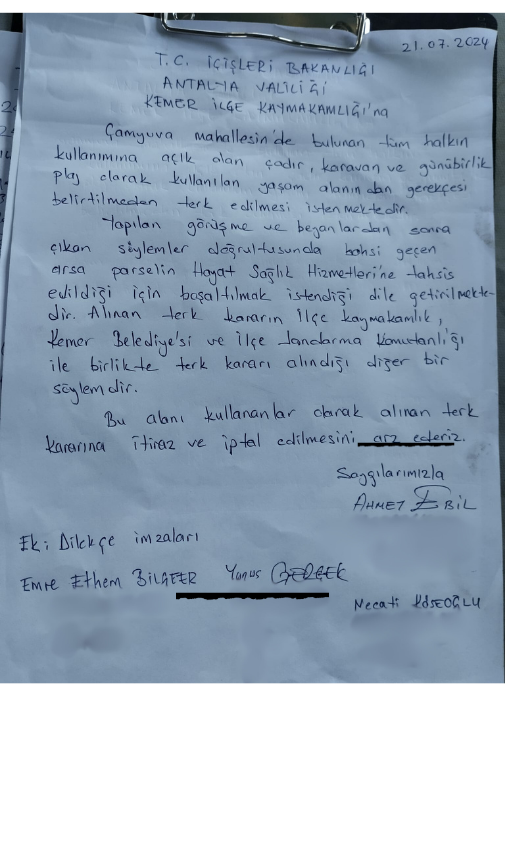 21.07.2024
T.C. İÇİŞLERİ BAKANLIĞI
ANTALYA VALİLİĞİ
KEMER İLÇE KAYMAKAMLIĞI'na
Çamyuva mahallesin'de bulunan tüm halkın
kullanımına açık olan çadır, karavan ve günübirlik
plaj olarak kullanılan yaşam alanından gerekçesi
belirtilmeden terk edilmesi istenmektedir.
Yapılan görüşme ve beyanlardan sonra
çıkan söylemler doğrultusunda bahsi geçen
arsa parselin Hayat Sağlık Hizmetleri'ne tahsis
edildiği için boşaltılmak istendiği dile getirilmekte-
dir. Alınan terk kararın İlçe kaymakamlık,
Kemer Belediye'si ve İlçe Jandarma Komutanlığı
ile birlikte terk kararı alındığı diğer bir
söylemdir.
Bu alanı kullananlar olarak alınan terk
kararına itiraz ve iptal edilmesini arz ederiz.
Saygılarımızla
AHMET BİL
Ek: Dilekçe imzaları
Emre Ethem BİLAFER Yunus
Necati KÖSEOĞLU